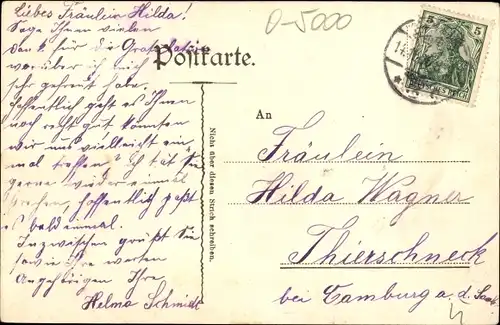 Liebes Fräulein Hilda!
Sage Ihnen vielen
Dank für die Gratulation
worüber ich mich
sehr gefreut habe.
Hoffentlich geht es Ihnen
noch recht gut könnten
wir uns vielleicht ein-
mal treffen? Ich tät Sie
gerne wieder einmal
sprechen, hoffentlich paßt
es bald einmal.
Inzwischen grüßt Sie
sowie Ihre werten
Angehörigen Ihre
Helma Schmidt
0-5000
Postkarte.
5 5
DEUTSCHES REICH
Nicht über diesen Strich schreiben.
An
Fräulein
Hilda Wagner
Thierschneck
bei Camburg a. d. Saale